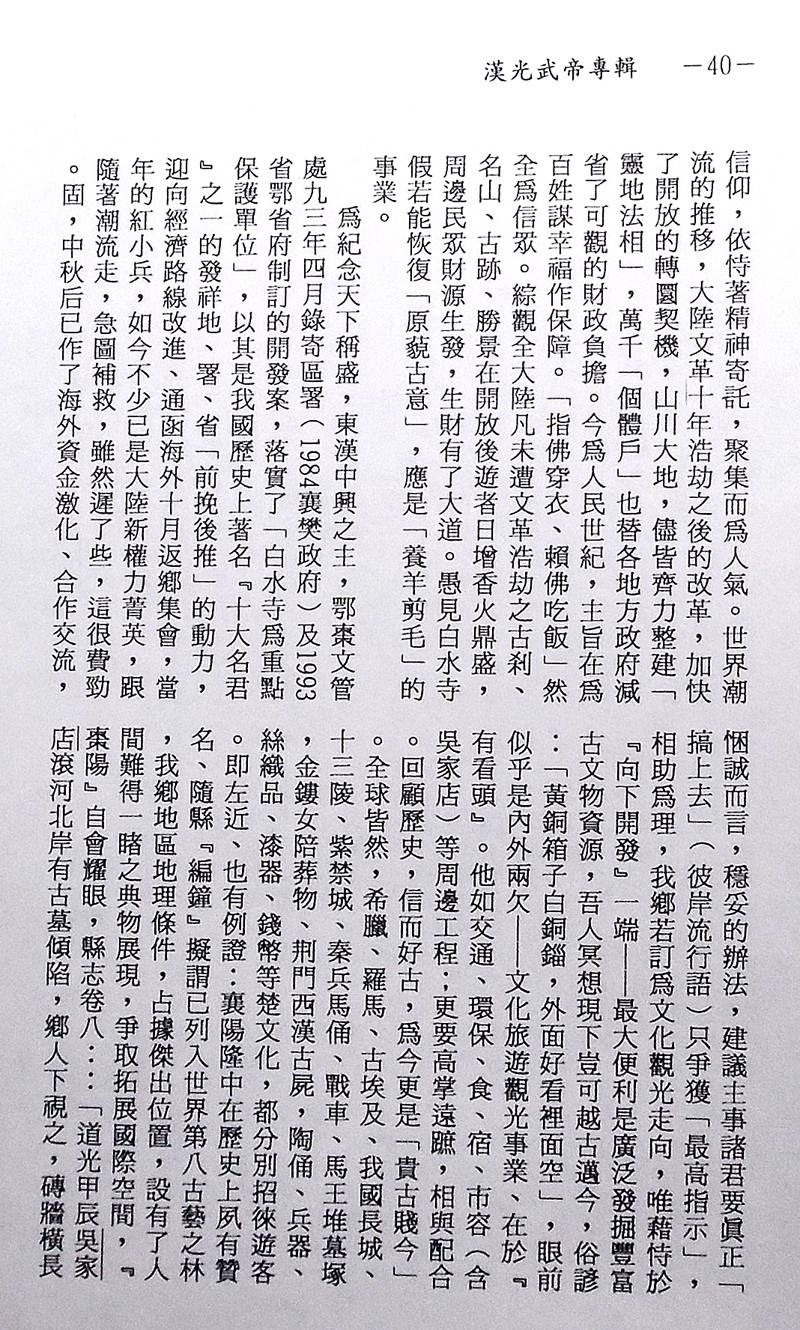 漢光武帝專輯　－40－
信仰，依恃著精神寄託，聚集而為人氣。世界潮
流的推移，大陸文革十年浩劫之後的改革，加快
了開放的轉圜契機，山川大地，儘皆齊力整建「
靈地法相」，萬千「個體戶」也替各地方政府減
省了可觀的財政負擔。今為人民世紀，主旨在為
百姓謀幸福作保障。「指佛穿衣、賴佛吃飯」然
全為信眾。綜觀全大陸凡未遭文革浩劫之古剎、
名山、古跡、勝景在開放後遊者日增香火鼎盛，
周邊民眾財源生發，生財有了大道。愚見白水寺
假若能恢復「原藐古意」，應是「養羊剪毛」的
事業。
為紀念天下稱盛，東漢中興之主，鄂棗文管
處九三年四月錄寄區署（1984襄樊政府）及1993
省鄂省府制訂的開發案，落實了「白水寺為重點
保護單位」，以其是我國歷史上著名『十大名君
』之一的發祥地、署、省「前挽後推」的動力，
迎向經濟路線改進、通函海外十月返鄉集會，當
年的紅小兵，如今不少已是大陸新權力菁英，跟
隨著潮流走，急圖補救，雖然遲了些，這很費勁
。固，中秋后已作了海外資金激化、合作交流，
悃誠而言，穩妥的辦法，建議主事諸君要眞正「
搞上去」（彼岸流行語）只爭獲「最高指示」，
相助為理，我鄉若訂為文化觀光走向，唯藉恃於
『向下開發』一端——最大便利是廣泛發掘豐富
古文物資源，吾人冥想現下豈可越古邁今，俗諺
：「黃銅箱子白銅錙，外面好看裡面空」，眼前
似乎是內外兩欠——文化旅遊觀光事業、在於『
有看頭』。他如交通、環保、食、宿、市容（含
吳家店）等周邊工程；更要高掌遠蹠，相與配合
。回顧歷史，信而好古，為今更是「貴古賤今」
。全球皆然，希臘、羅馬、古埃及、我國長城、
十三陵、紫禁城、秦兵馬俑、戰車、馬王堆墓塚
，金鏤女陪葬物、荆門西漢古屍，陶俑、兵器、
絲織品、漆器、錢幣等楚文化，都分別招徠遊客
。即左近、也有例證：襄陽隆中在歷史上夙有贊
名、隨縣『編鐘』擬謂已列入世界第八古藝之林
，我鄉地區地理條件，占據傑出位置，設有了人
間難得一睹之典物展現，爭取拓展國際空間，『
棗陽』自會耀眼，縣志卷八：…「道光甲辰吳家
店滾河北岸有古墓傾陷，鄉人下視之，磚牆橫長